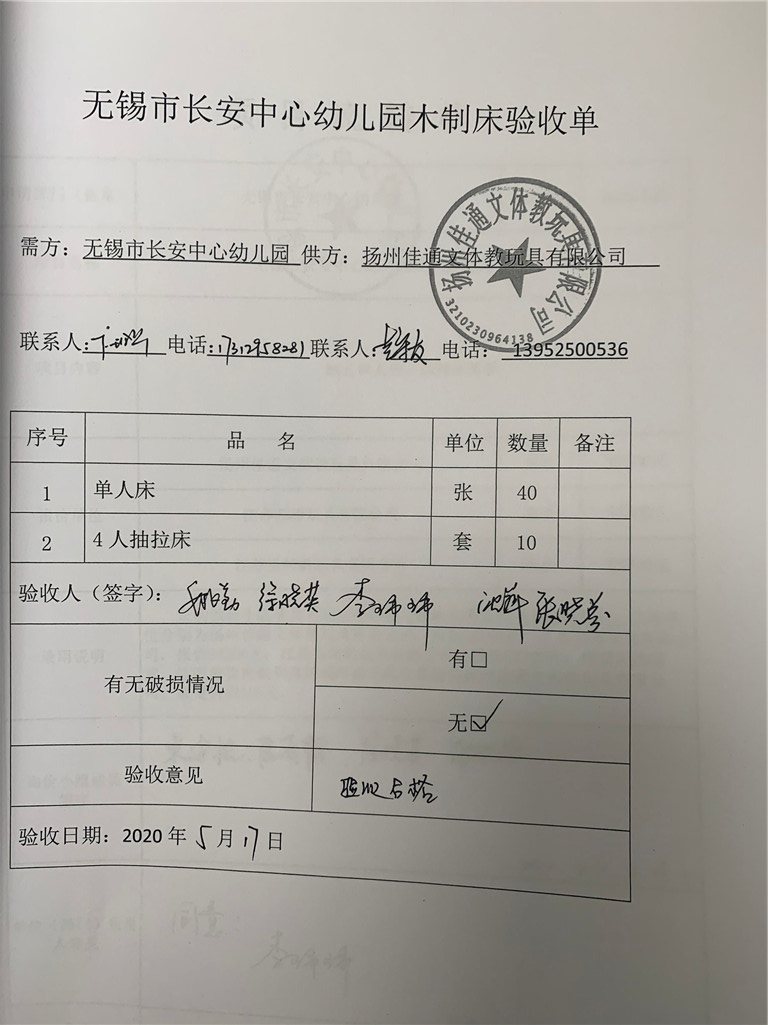 无锡市长安中心幼儿园木制床验收单
扬州佳通文体教玩具有限公司
3210230964138
需方：无锡市长安中心幼儿园 供方：扬州佳通文体教玩具有限公司
联系人： 电话：17312958281 联系人： 电话： 13952500536
序号 品 名 单位 数量 备注
1 单人床 张 40
2 4人抽拉床 套 10
验收人（签字）： 徐晓英 李玮玮 张晓芬
有无破损情况
有□
无☑
验收意见 验收合格
验收日期：2020年5月17日